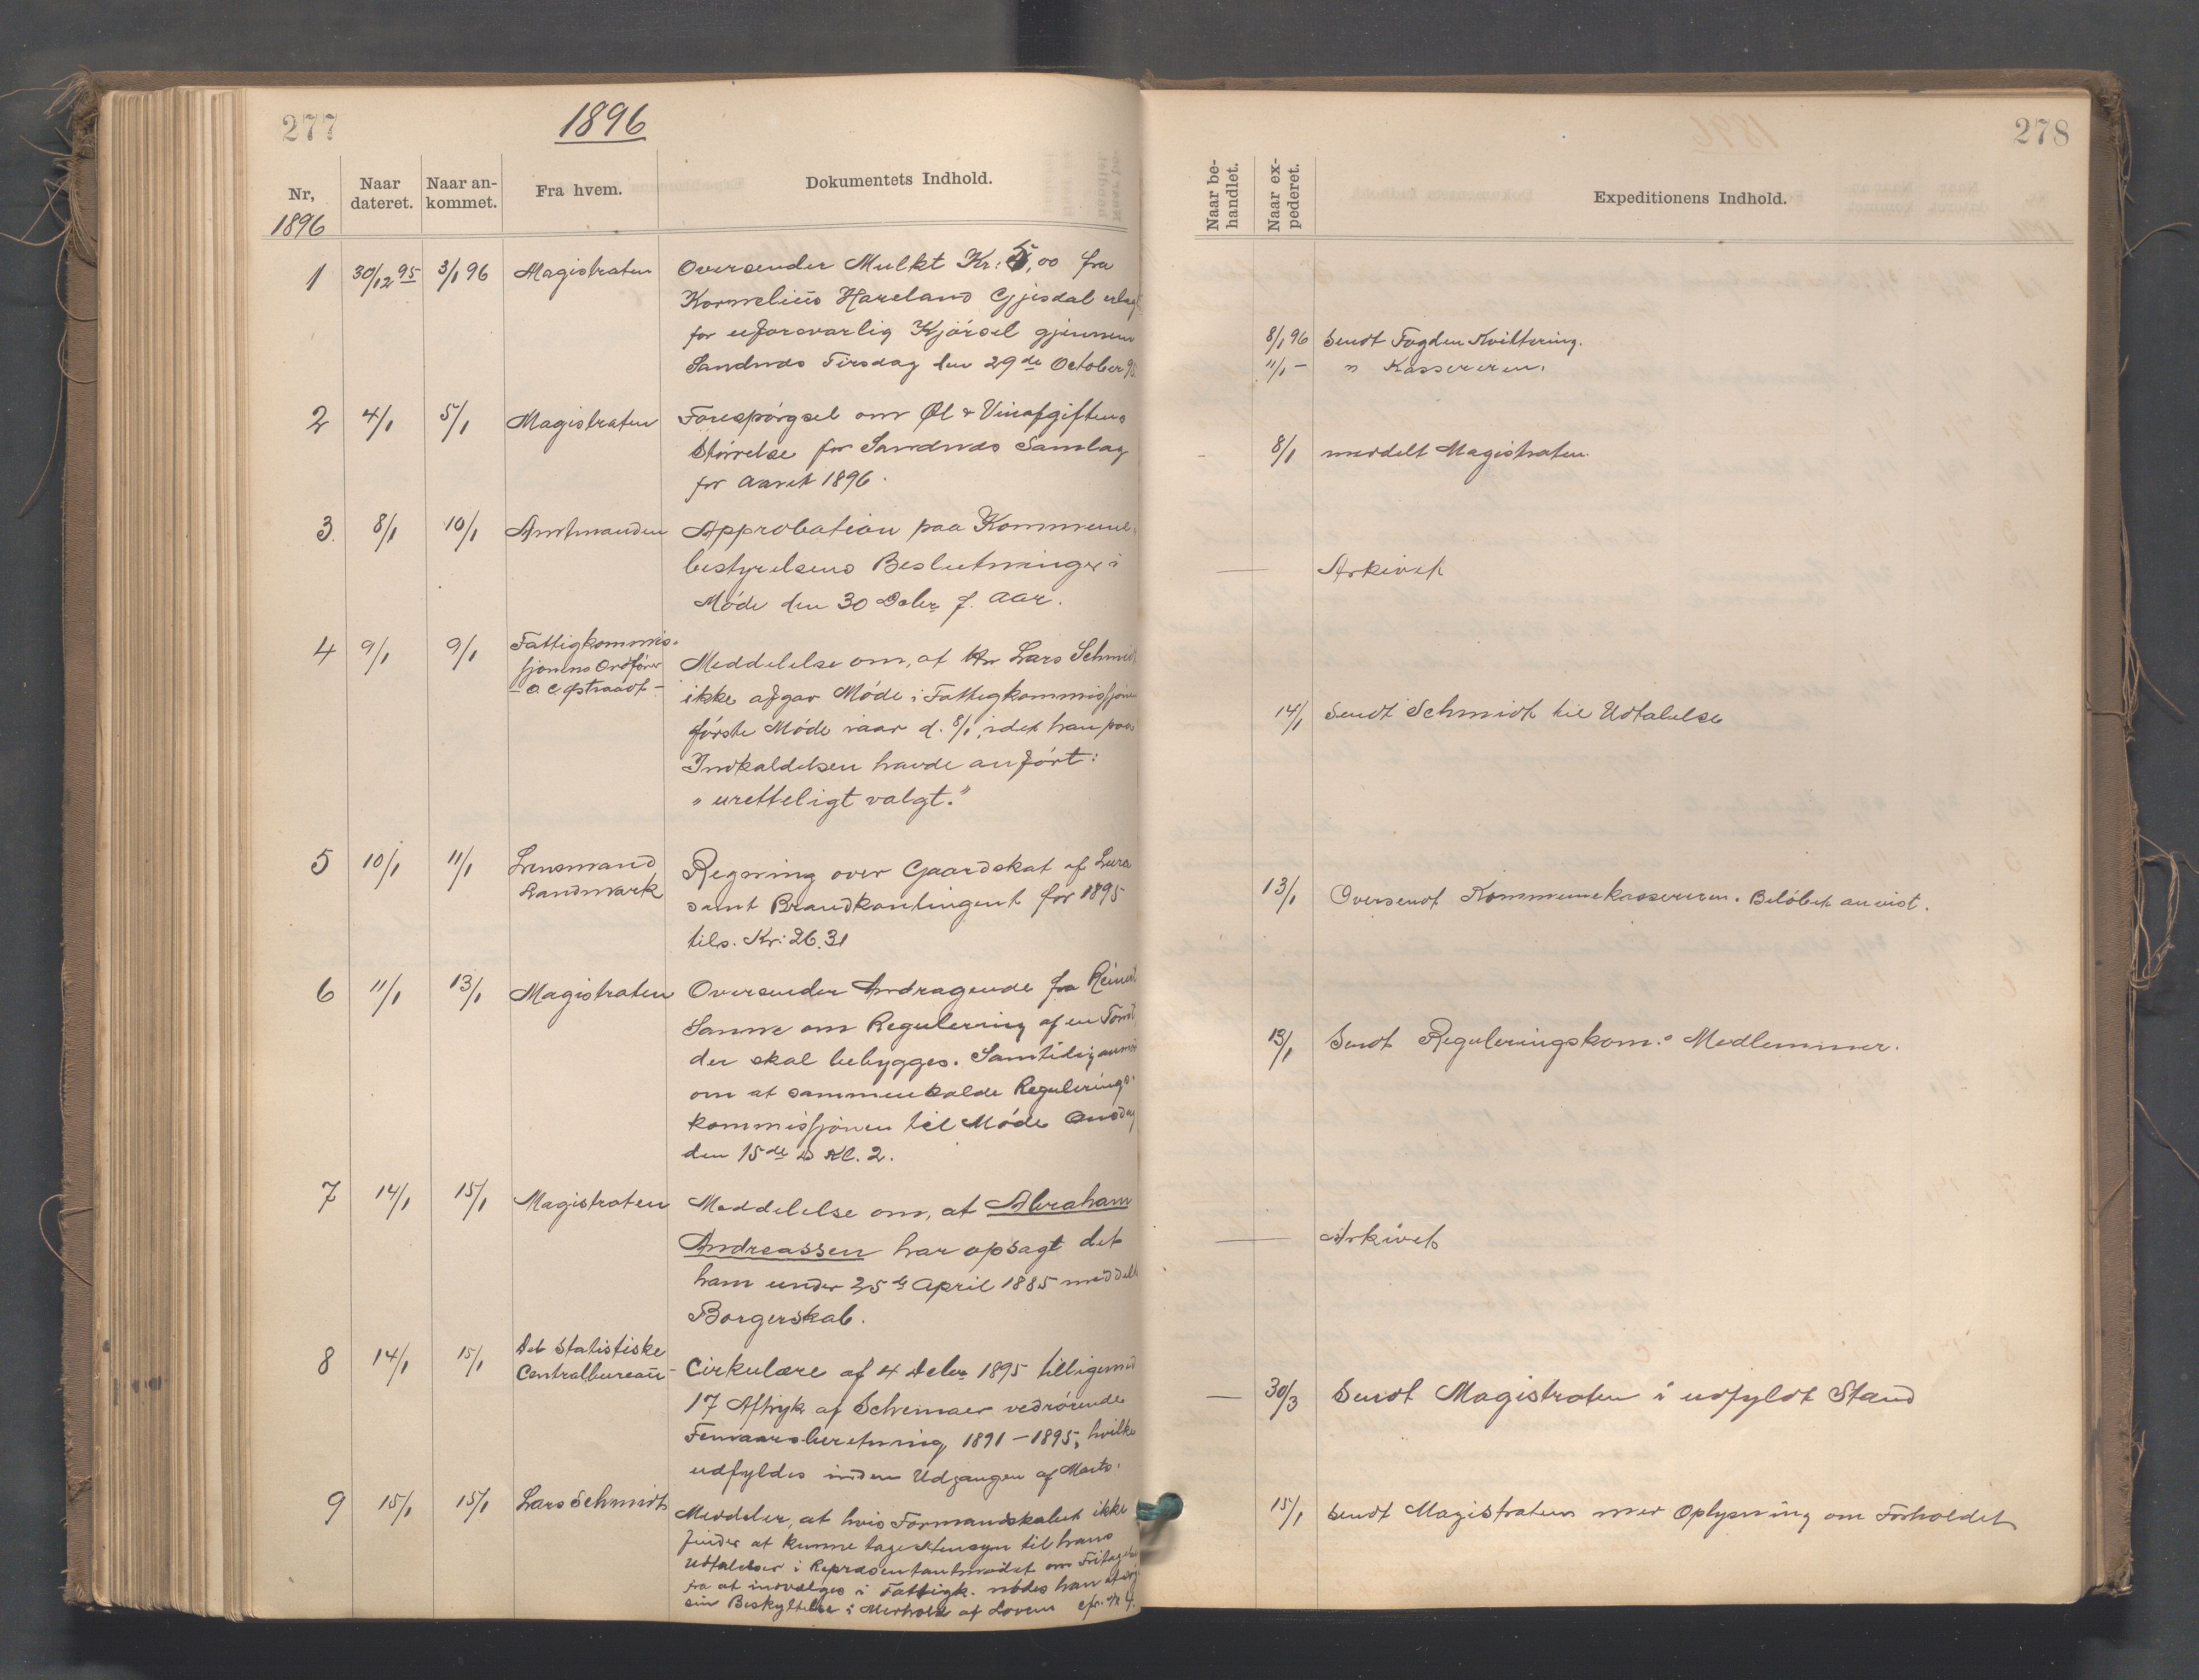 277
1896
Nr,
Naar dateret.
Naar ankommet.
Fra hvem.
Dokumentets Indhold.
1896
1 30/12 95 3/1 96 Magistraten Oversender Mulkt Kr: 5,00 fra
Kornelius Hareland Gjesdal erlagt
for uforsvarlig Kjørsel gjennem
Sandnæs Tirsdag den 29de October 95
2 4/1 5/1 Magistraten Forespørgsel om Øl & Vinafgiftens
Størrelse for Sandnæs Samlag
for Aaret 1896.
3. 8/1 10/1 Amtmanden Approbation paa Kommune-
bestyrelsens Beslutninger i
Møde den 30 Decbr f. Aar.
4 9/1 9/1 Fattigkommis-
sjonens Ordfører
Meddelelse om, at Hr Lars Schmidt
ikke afgav Møde i Fattigkommissjonens
første Møde iaar d. 8/1, idet han paa
Indkaldelsen havde anført:
„uretteligt valgt."
5 10/1 11/1 Lensmand
Landmark
Regning over Gaardskat af Lura
samt Brandkontingent for 1895
tils. Kr: 26.31
6 11/1 13/1 Magistraten Oversender Andragende fra Reinert
Sanne om Regulering af en Tomt
der skal bebygges. Samtidig
om at sammenkalde Regulerings-
kommissjonen til Møde Onsdag
den 15de ds Kl. 2.
7 14/1 15/1 Magistraten Meddelelse om, at Abraham
Andreassen har opsagt det
ham under 25de April 1885 meddelt
Borgerskab.
8 14/1 15/1 Det statistiske
Centralbureau -
Cirkulære af 4 Decbr 1895 tilligemed
17 Aftryk af Schemaer vedrørende
Femaarsberetning 1891 - 1895, hvilke
udfyldes inden Udgangen af Marts.
9 15/1 15/1 Lars Schmidt Meddeler, at hvis Formandskabet ikke
finder at kunne tage Hensyn til hans
Udtalelser i Repræsentantmødet om Fritagelse
fra at indvælges i Fattigk. nødes han at søge
sin Beskyttelse i Medhold af Loven cfr. № 4.
278
Naar behandlet.
Naar expederet.
Expeditionens Indhold.
8/1 96 Sendt Fogden Kvittering.
11/1 - " Kassereren.
- 8/1 meddelt Magistraten.
— Arkivet
14/1 Sendt Schmidt til Udtalelse
13/1 Oversendt Kommunekassereren. Beløbet anvist.
13/1 Sendt Reguleringskom.s Medlemmer.
— Arkivet
— 30/3 Sendt Magistraten i udfyldt Stand
15/1 Sendt Magistraten med Oplysning om Forholdet